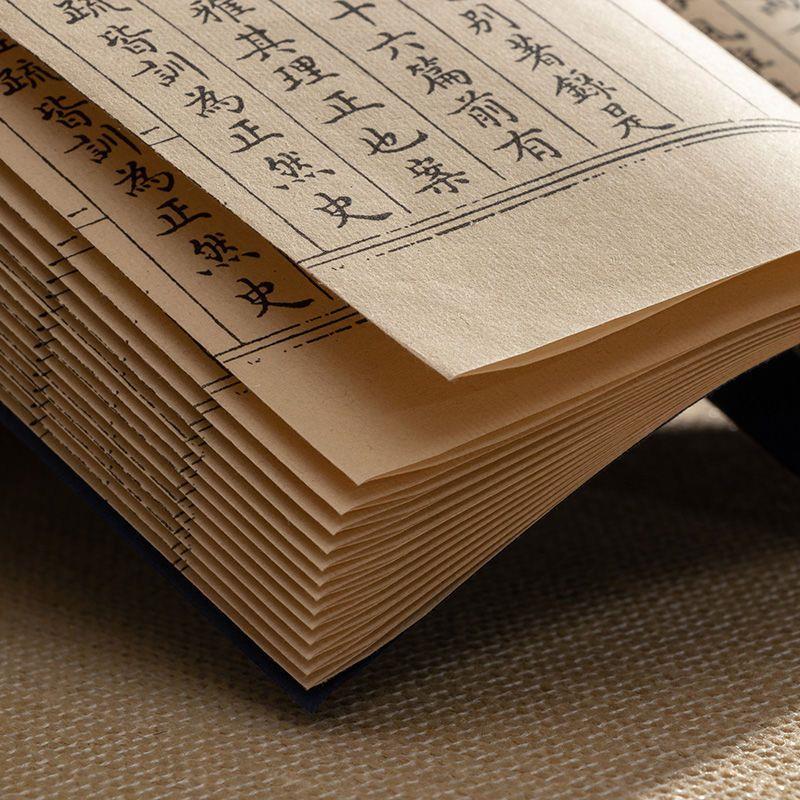 別著錄是
十六篇前有
雅其理正也案
疏皆訓為正然史
疏皆訓為正然史